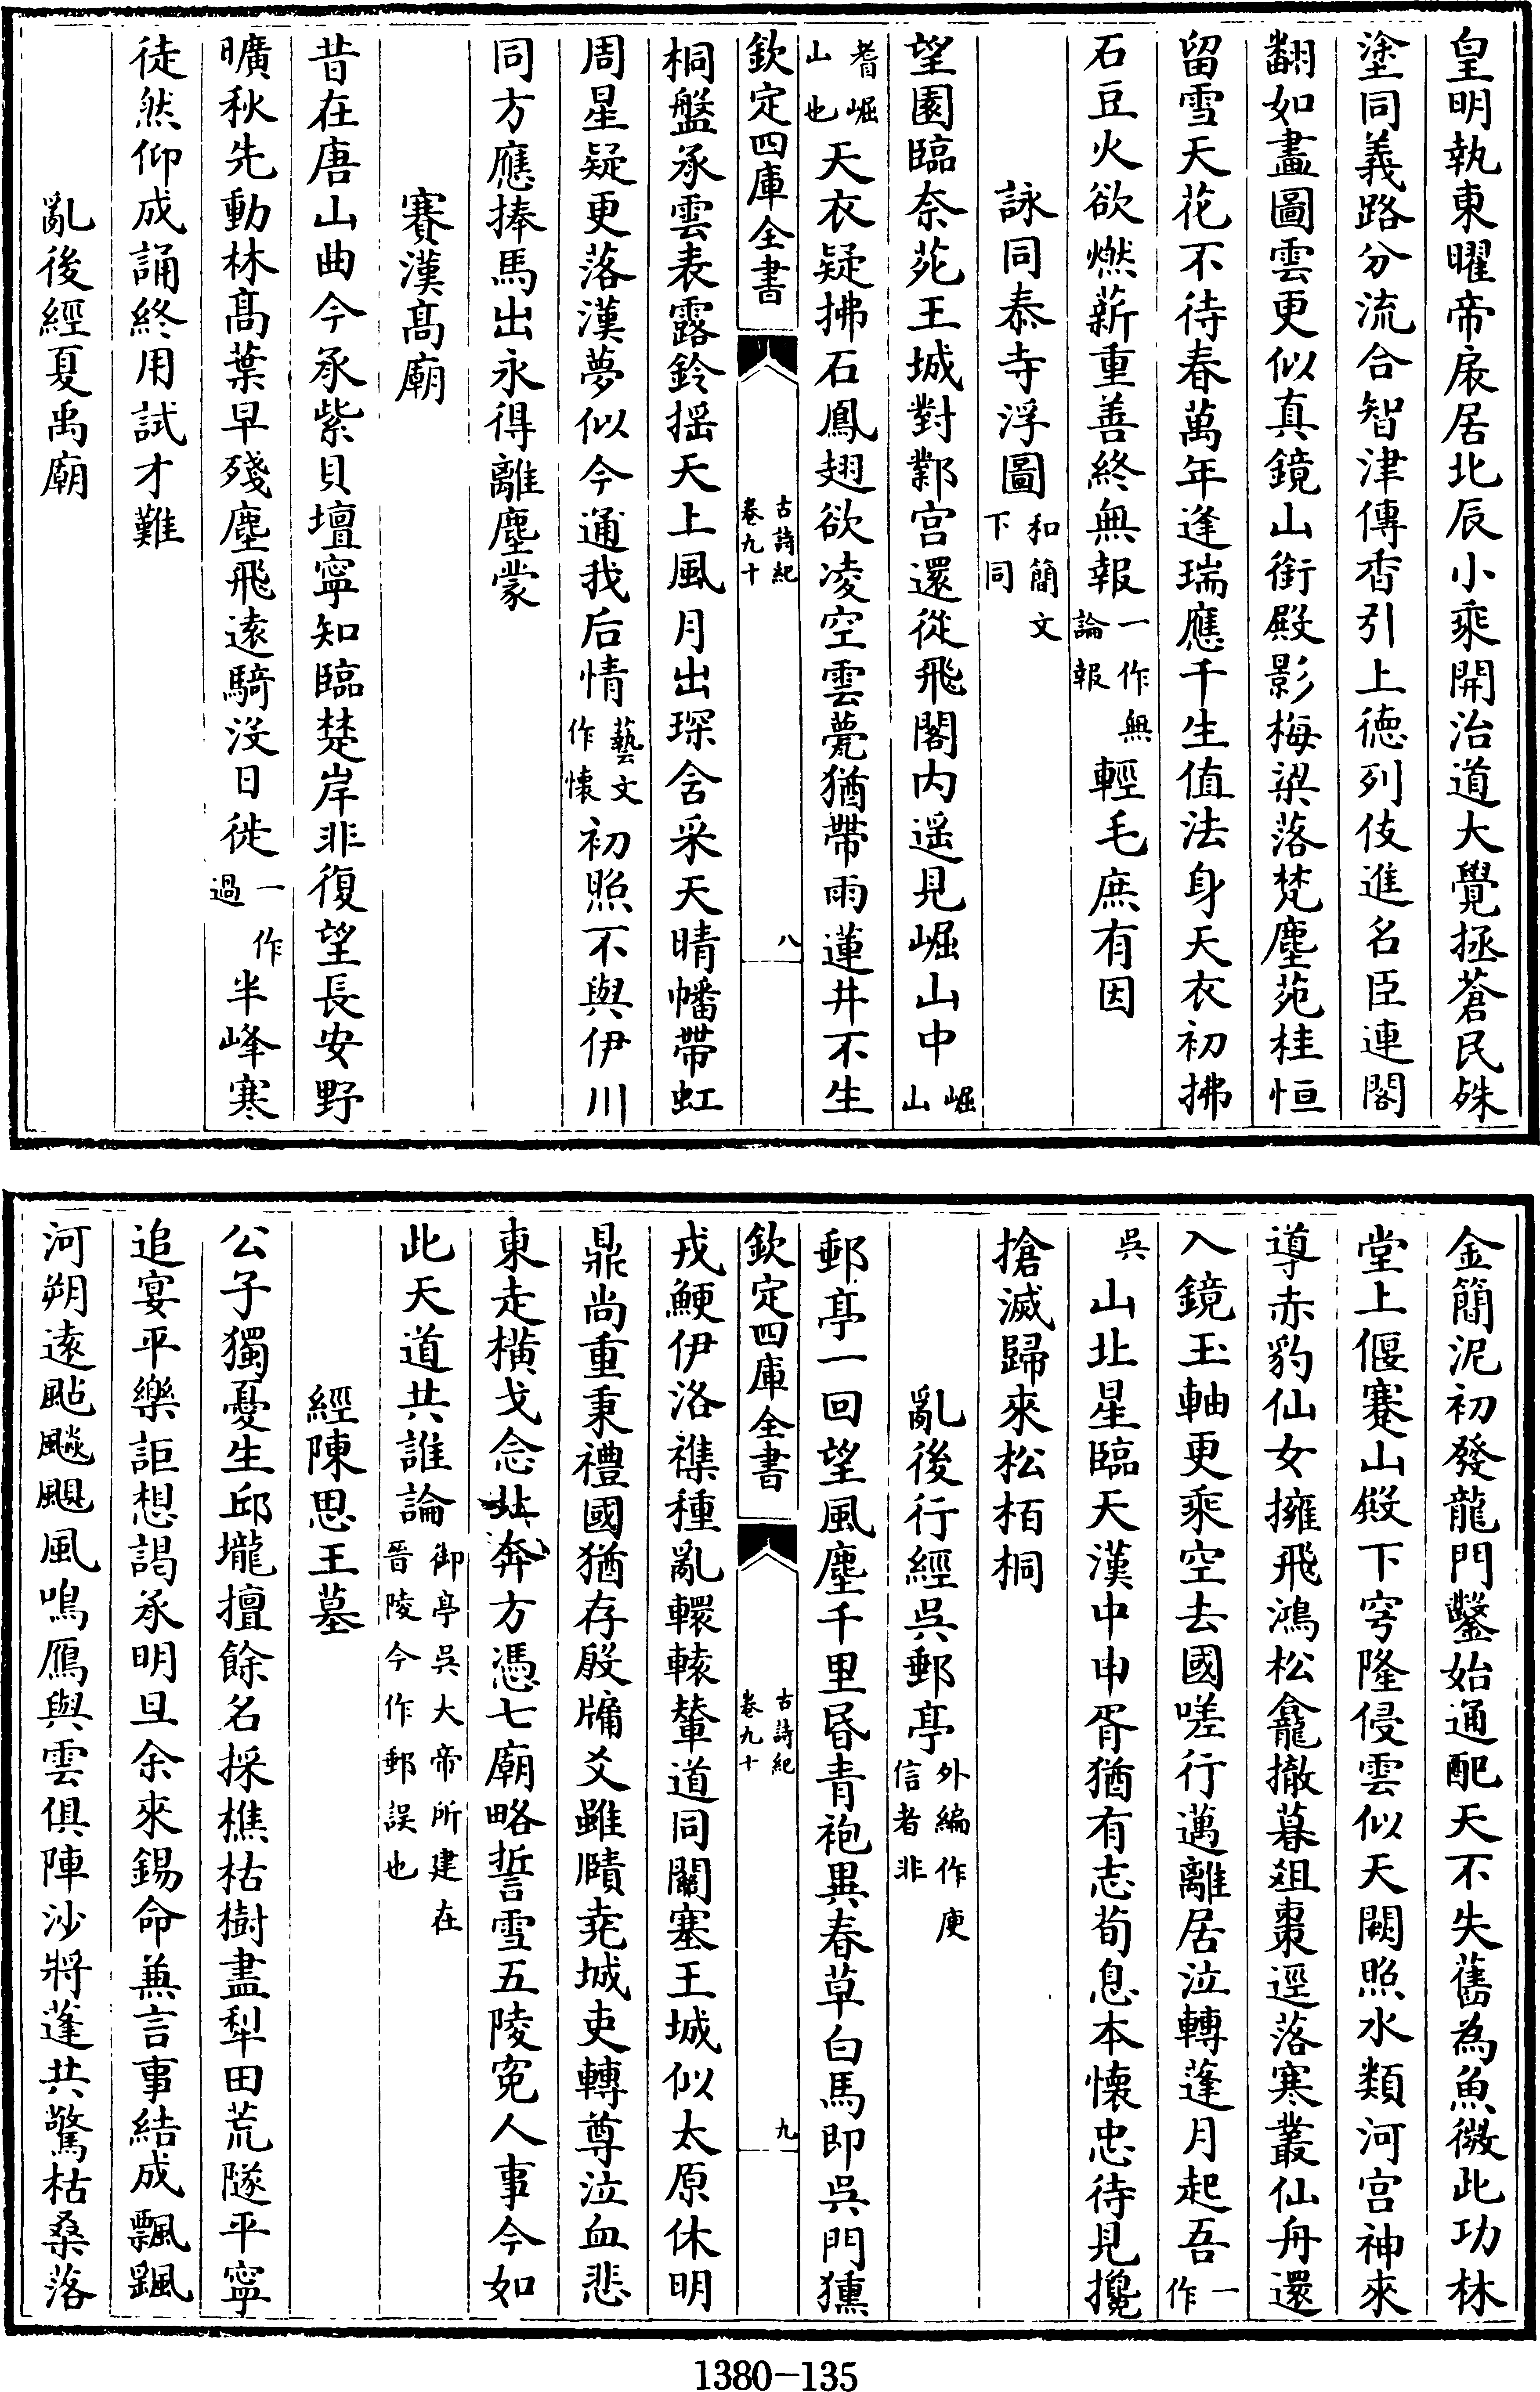 皇明執東曜帝扆居北辰小乘開治道大覺拯蒼民殊
塗同義路分流合智津傳香引上德列伎進名臣連閣
翻如畫圖雲更似真鏡山銜殿影梅梁落梵塵苑桂恒
留雪天花不待春萬年逢瑞應千生值法身天衣初拂
石豆火欲燃薪重善終無報一作無論報輕毛庶有因
詠同泰寺浮圖和簡文下同
望園臨奈苑王城對鄴宫還從飛閣内遥見崛山中崛山
耆崛山也天衣疑拂石鳳翅欲凌空雲甍猶帶雨蓮井不生
欽定四庫全書
古詩紀
卷九十
八
桐盤承雲表露鈴揺天上風月出琛含采天晴幡帶虹
周星疑更落漢夢似今通我后情藝文作懐初照不與伊川
同方應捧馬出永得離塵蒙
賽漢髙廟
昔在唐山曲今承紫貝壇寜知臨楚岸非復望長安野
曠秋先動林髙葉早殘塵飛逺騎没日徙一作過半峰寒
徒然仰成誦終用試才難
亂後經夏禹廟
金簡泥初發龍門鑿始通配天不失舊為魚微此功林
堂上偃蹇山殿下穹隆侵雲似天闕照水類河宫神來
導赤豹仙女擁飛鴻松龕撤暮俎棗逕落寒叢仙舟還
入鏡玉軸更乘空去國嗟行邁離居泣轉蓬月起吾一作
吳山北星臨天漢中申胥猶有志荀息本懐忠待見攙
搶滅歸來松栢桐
亂後行經吳郵亭外編作庾信者非
郵亭一回望風塵千里昏青袍異春草白馬即吳門獯
欽定四庫全書
古詩紀
卷九十
九
戎鯁伊洛襍種亂轘轅輦道同關塞王城似太原休明
鼎尚重秉禮國猶存殷牖爻雖賾尭城吏轉尊泣血悲
東走横戈念北奔方憑七廟略誓雪五陵寃人事今如
此天道共誰論御亭吳大帝所建在晉陵今作郵誤也
經陳思王墓
公子獨憂生邱壠擅餘名採樵枯樹盡犁田荒隧平寧
追宴平樂詎想謁承明旦余來錫命兼言事結成飄颻
河朔逺颭飈颶風鳴鴈與雲俱陣沙將蓬共驚枯桑落
1380-135